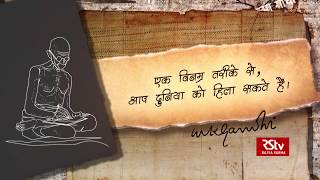 एक विनम्र तरीके से,
आप दुनिया को हिला सकते हैं।
mkgandhi
RStv
RAJYA SABHA